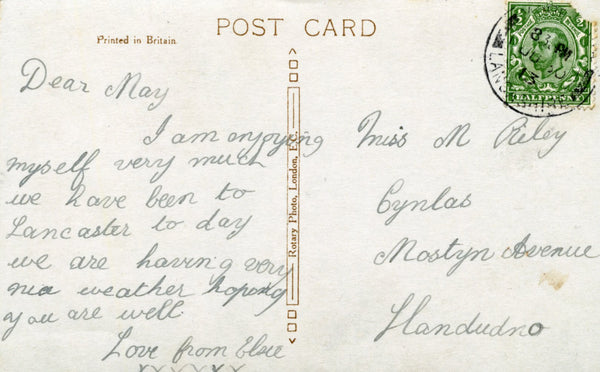 POST CARD
Printed in Britain.
Dear May
I am enjoying
myself very much
we have been to
Lancaster to day
we are having very
nice weather hoping
you are well
Love from Elsie
XXXXXX
Rotary Photo, London, E.C.
Miss M Riley
Cynlas
Mostyn Avenue
Llandudno
HALFPENNY
8. PM
13